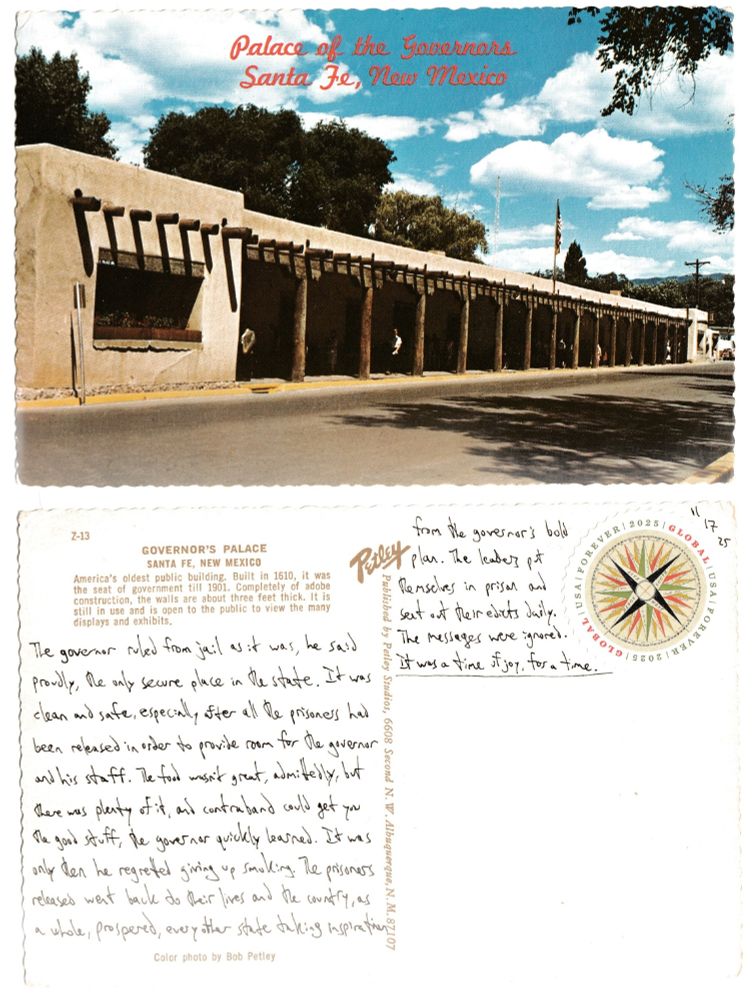 Palace of the Governors
Santa Fe, New Mexico
Z-13
GOVERNOR'S PALACE
SANTA FE, NEW MEXICO
America's oldest public building. Built in 1610, it was
the seat of government till 1901. Completely of adobe
construction, the walls are about three feet thick. It is
still in use and is open to the public to view the many
displays and exhibits.
The governor ruled from jail as it was, he said
proudly, the only secure place in the state. It was
clean and safe, especially after all the prisoners had
been released in order to provide room for the governor
and his staff. The food wasn't great, admittedly, but
there was plenty of it, and contraband could get you
the good stuff, the governor quickly learned. It was
only then he regretted giving up smoking. The prisoners
released went back to their lives and the country, as
a whole, prospered, every other state taking inspiration
Color photo by Bob Petley
Petley
Published by Petley Studios, 6608 Second N. W. Albuquerque, N. M. 87107
from the governor's bold
plan. The leaders put
themselves in prison and
sent out their edicts daily.
The messages were ignored.
It was a time of joy, for a time.
GLOBAL | USA | FOREVER | 2025 | GLOBAL | USA | FOREVER | 2025 |
11
17
25